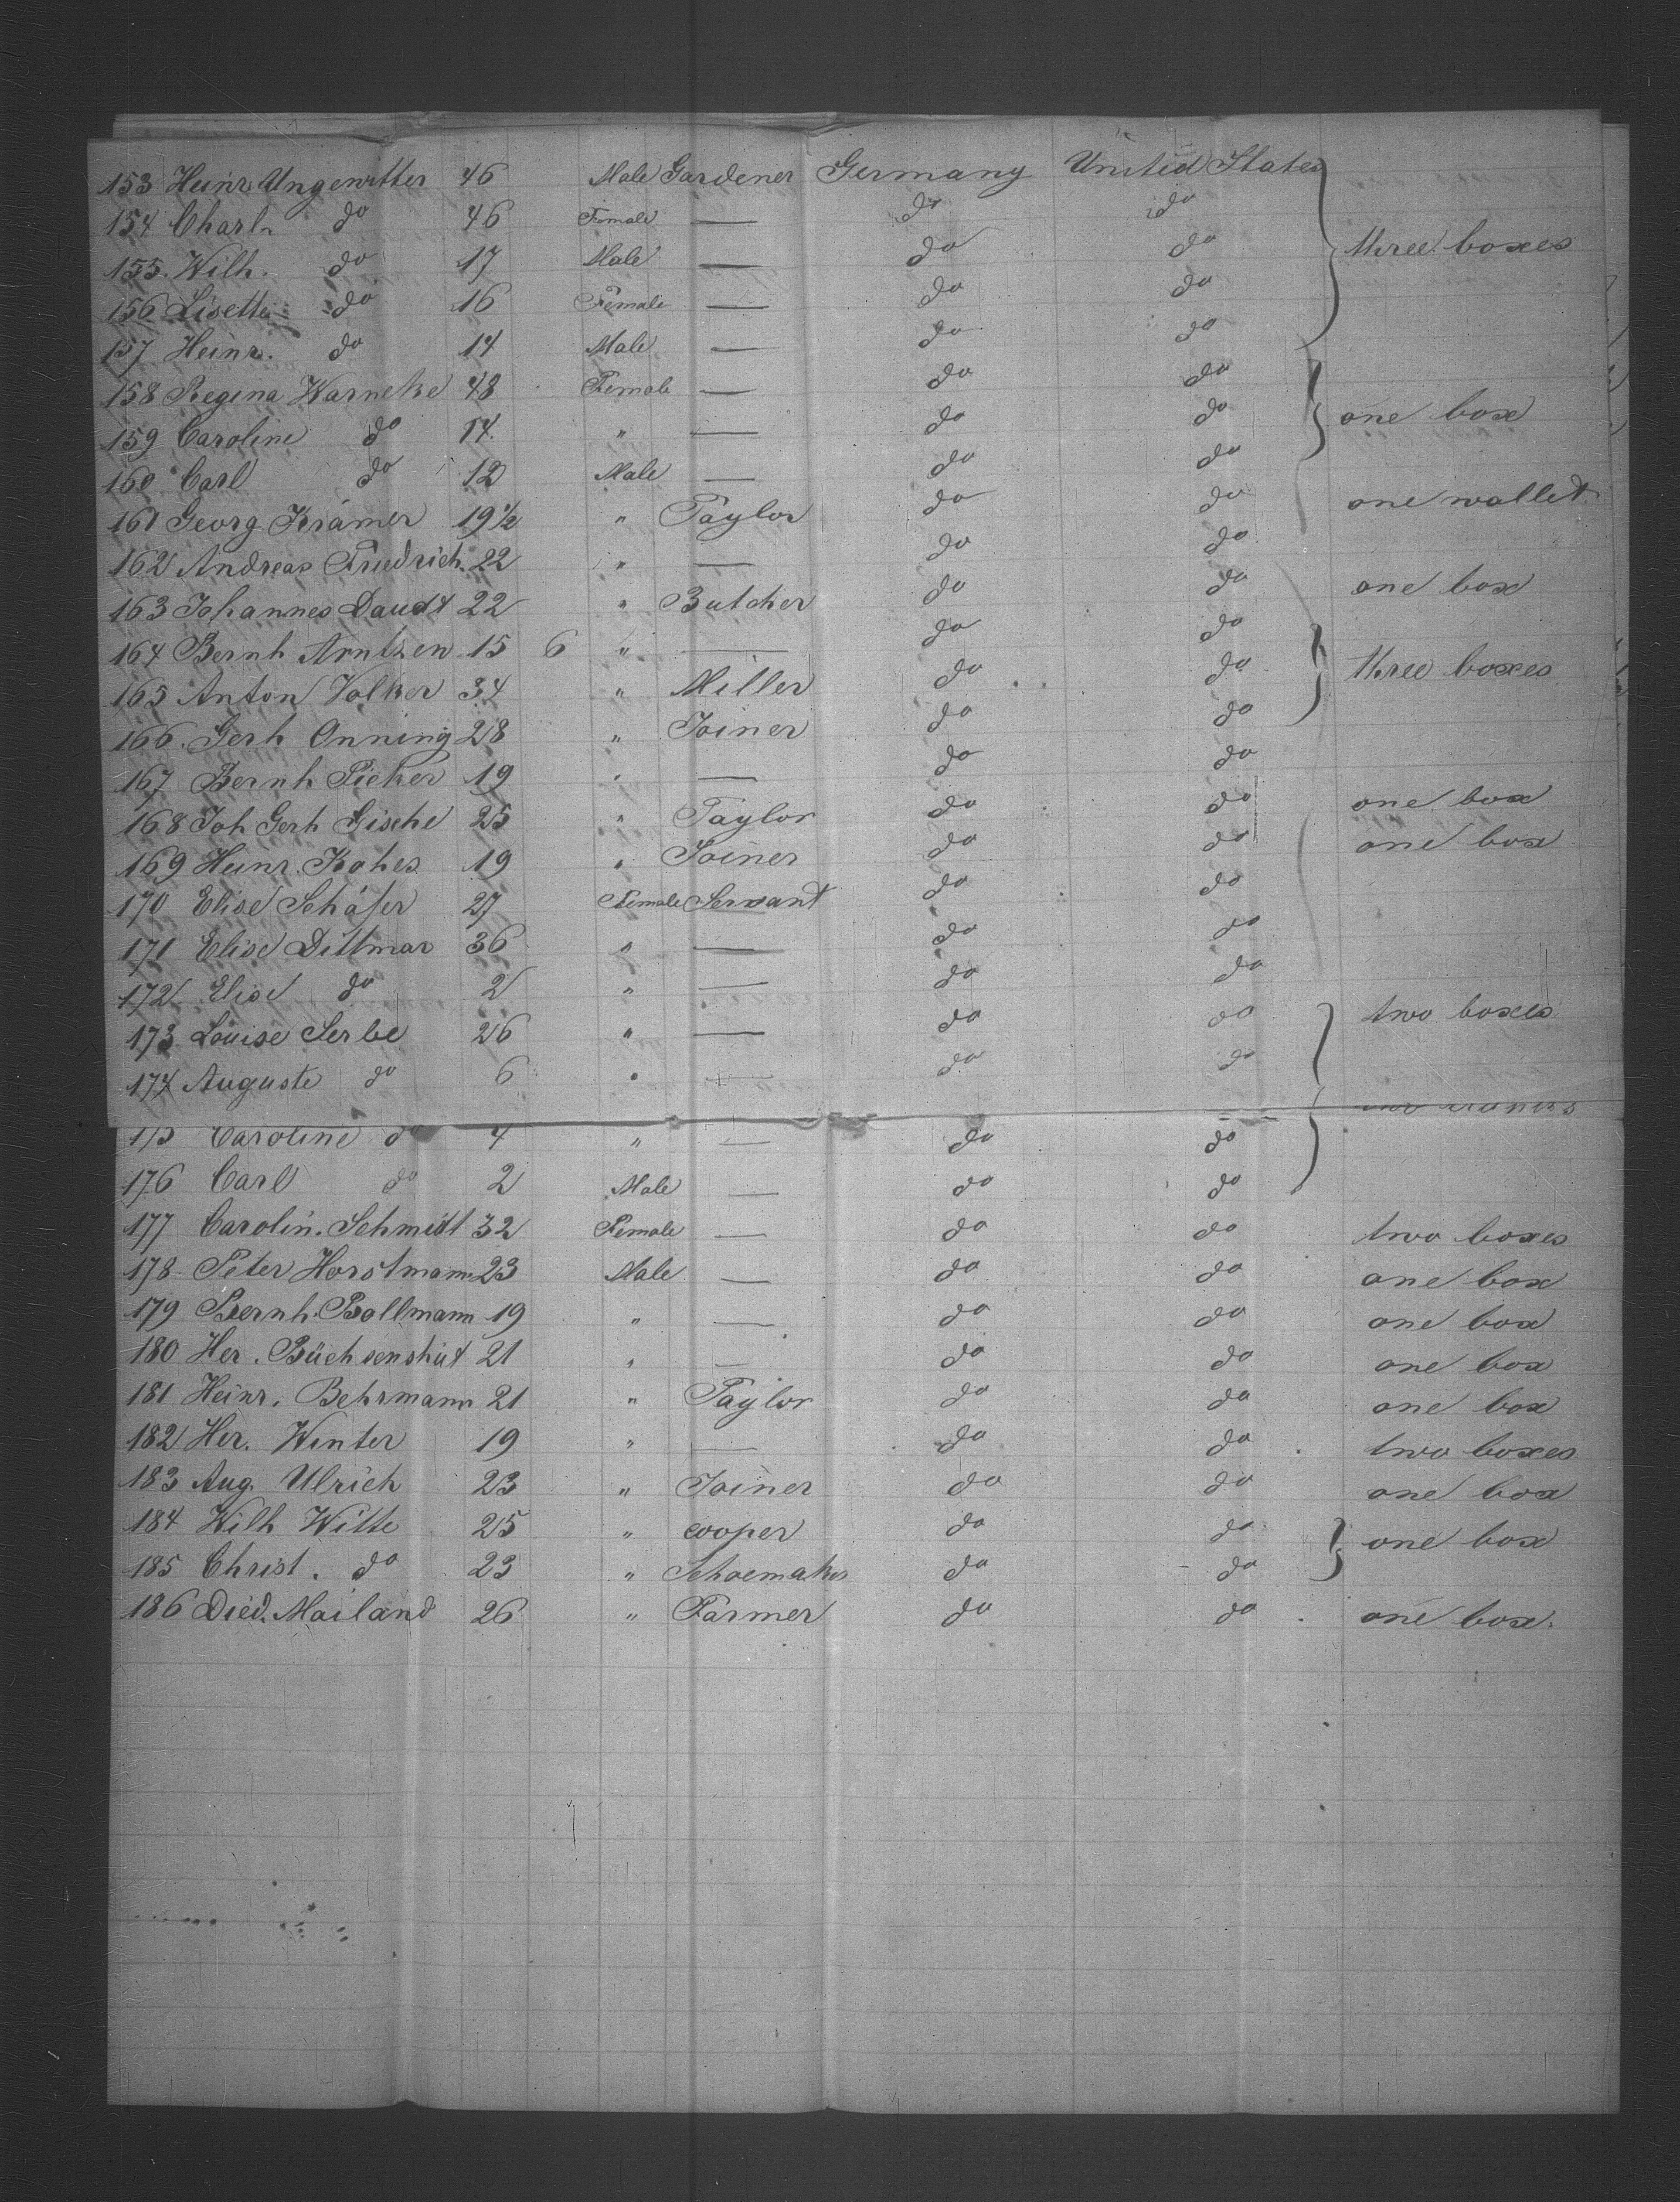 153 Heinr. Ungewitter 46 Male Gardener Germany United States
154 Charl. do 46 Female — do do
155. Wilh. do 17 Male — do do three boxes
156 Lisette do 16 Female — do do
157 Heinr. do 14 Male — do do
158 Regina Warneke 48 Female — do do
159 Caroline do 14. " — do do one box
160 Carl do 12 Male — do do
161 Georg Krämer 19½ " Taylor do do one wallet
162 Andreas Friedrich 22 " — do do
163 Johannes Daudt 22 " Butcher do do one box
164 Bernh Arntzen 15 6 " — do do
165 Anton Volker 34 " Miller do do three boxes
166. Gerh Onning 28 " Joiner do do
167 Bernh Picker 19 " — do do
168 Joh Gerh Gische 25 " Taylor do do one box
169 Heinr. Kohes 19 " Joiner do do one box
170 Elise Schäfer 27 Female Servant do do
171 Elise Dittmar 36 " — do do
172 Elise do 2 " — do do
173 Louise Serbe 26 " — do do two boxes
174 Auguste do 6 " — do do
175 Caroline do 4 " — do do
176 Carl do 2 Male — do do
177 Carolin. Schmidt 32 Female — do do two boxes
178 Peter Horstmann 23 Male — do do one box
179 Bernh. Bollmann 19 " — do do one box
180 Her. Büchsenshüt 21 " — do do one box
181 Heinr. Behrmann 21 " Taylor do do one box
182 Her. Winter 19 " — do do two boxes
183 Aug. Ulrich 23 " Joiner do do one box
184 Wilh Witte 25 " cooper do do one box
185 Christ. do 23 " Schoemaker do do
186 Died. Mailand 26 " Farmer do do one box.